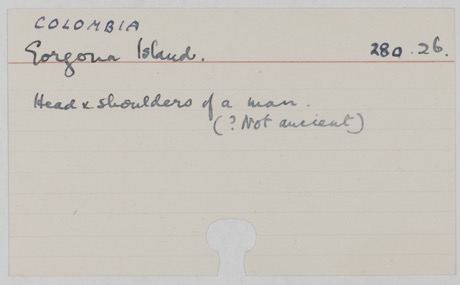 COLOMBIA
Gorgona Island. 280.26.
Head & shoulders of a man.
(? Not ancient)